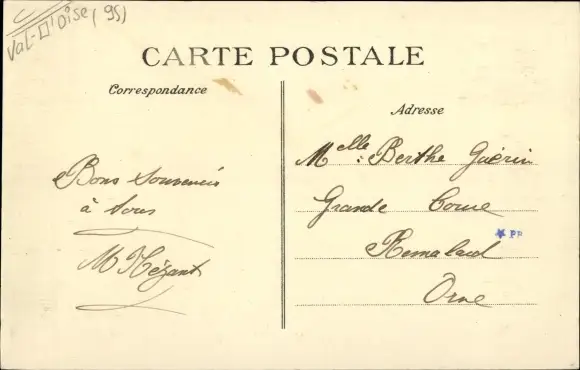 Val-D'Oise (95)
CARTE POSTALE
Correspondance
Adresse
Bons Souvenirs
à tous
M Hézant
Melle : Berthe Guérin
Grande Cour
Remalard
Orne
PP